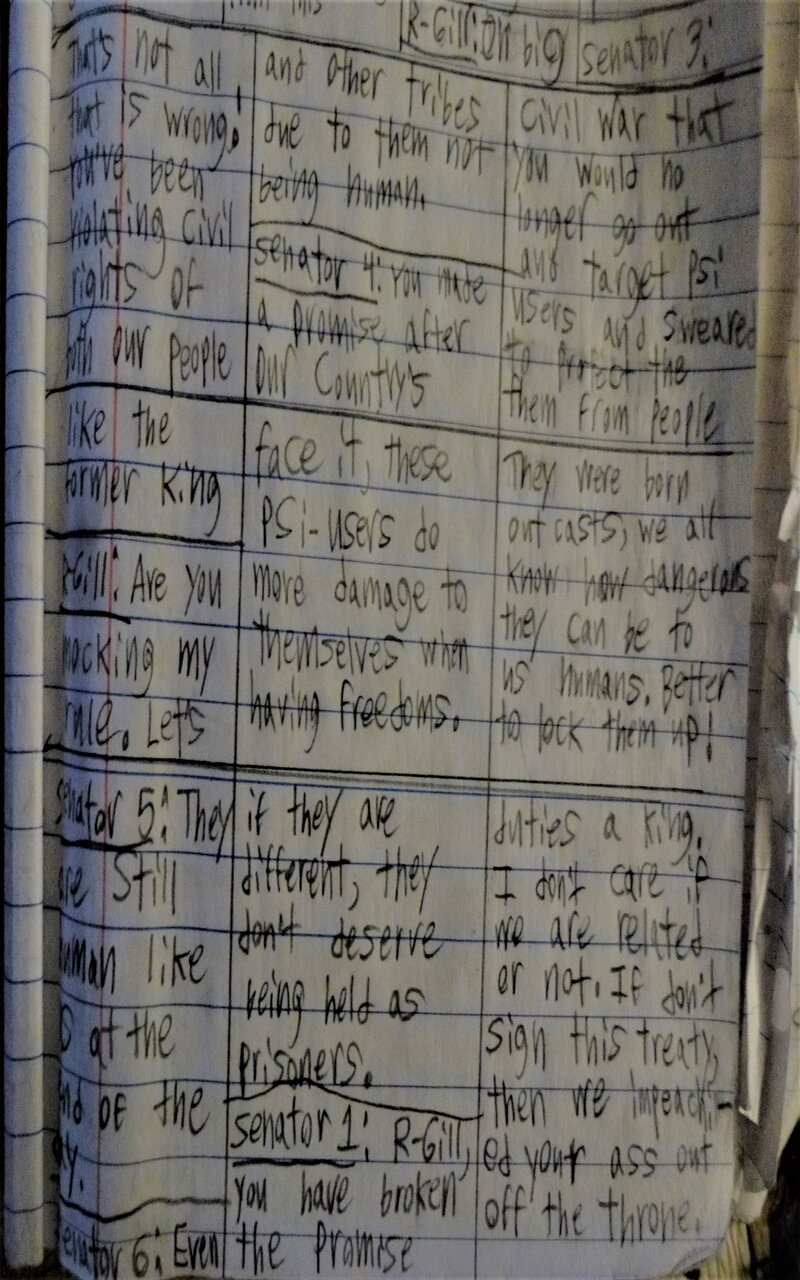 this
R-Gill: Oh big
senator 3:
That's not all
that is wrong!
You've been
violating civil
rights of
both our people
and other tribes
due to them not
being human.
senator 4: You made
a promise after
our country's
civil war that
you would no
longer go out
and target PSI
users and sweared
to protect the
them from people
like the
former king
R-Gill: Are you
mocking my
rule. Let's
face it, these
PSI-users do
more damage to
themselves when
having freedoms.
They were born
outcasts, we all
know how dangerods
they can be to
us humans. Better
to lock them up!
senator 5: They
are still
human like
us at the
end of the
day.
senator 6: Even
if they are
different, they
don't deserve
being held as
prisoners.
senator 1: R-Gill,
you have broken
the promise
duties a king.
I don't care if
we are related
or not. If don't
sign this treaty,
then we impeach-
ed your ass out
off the throne.